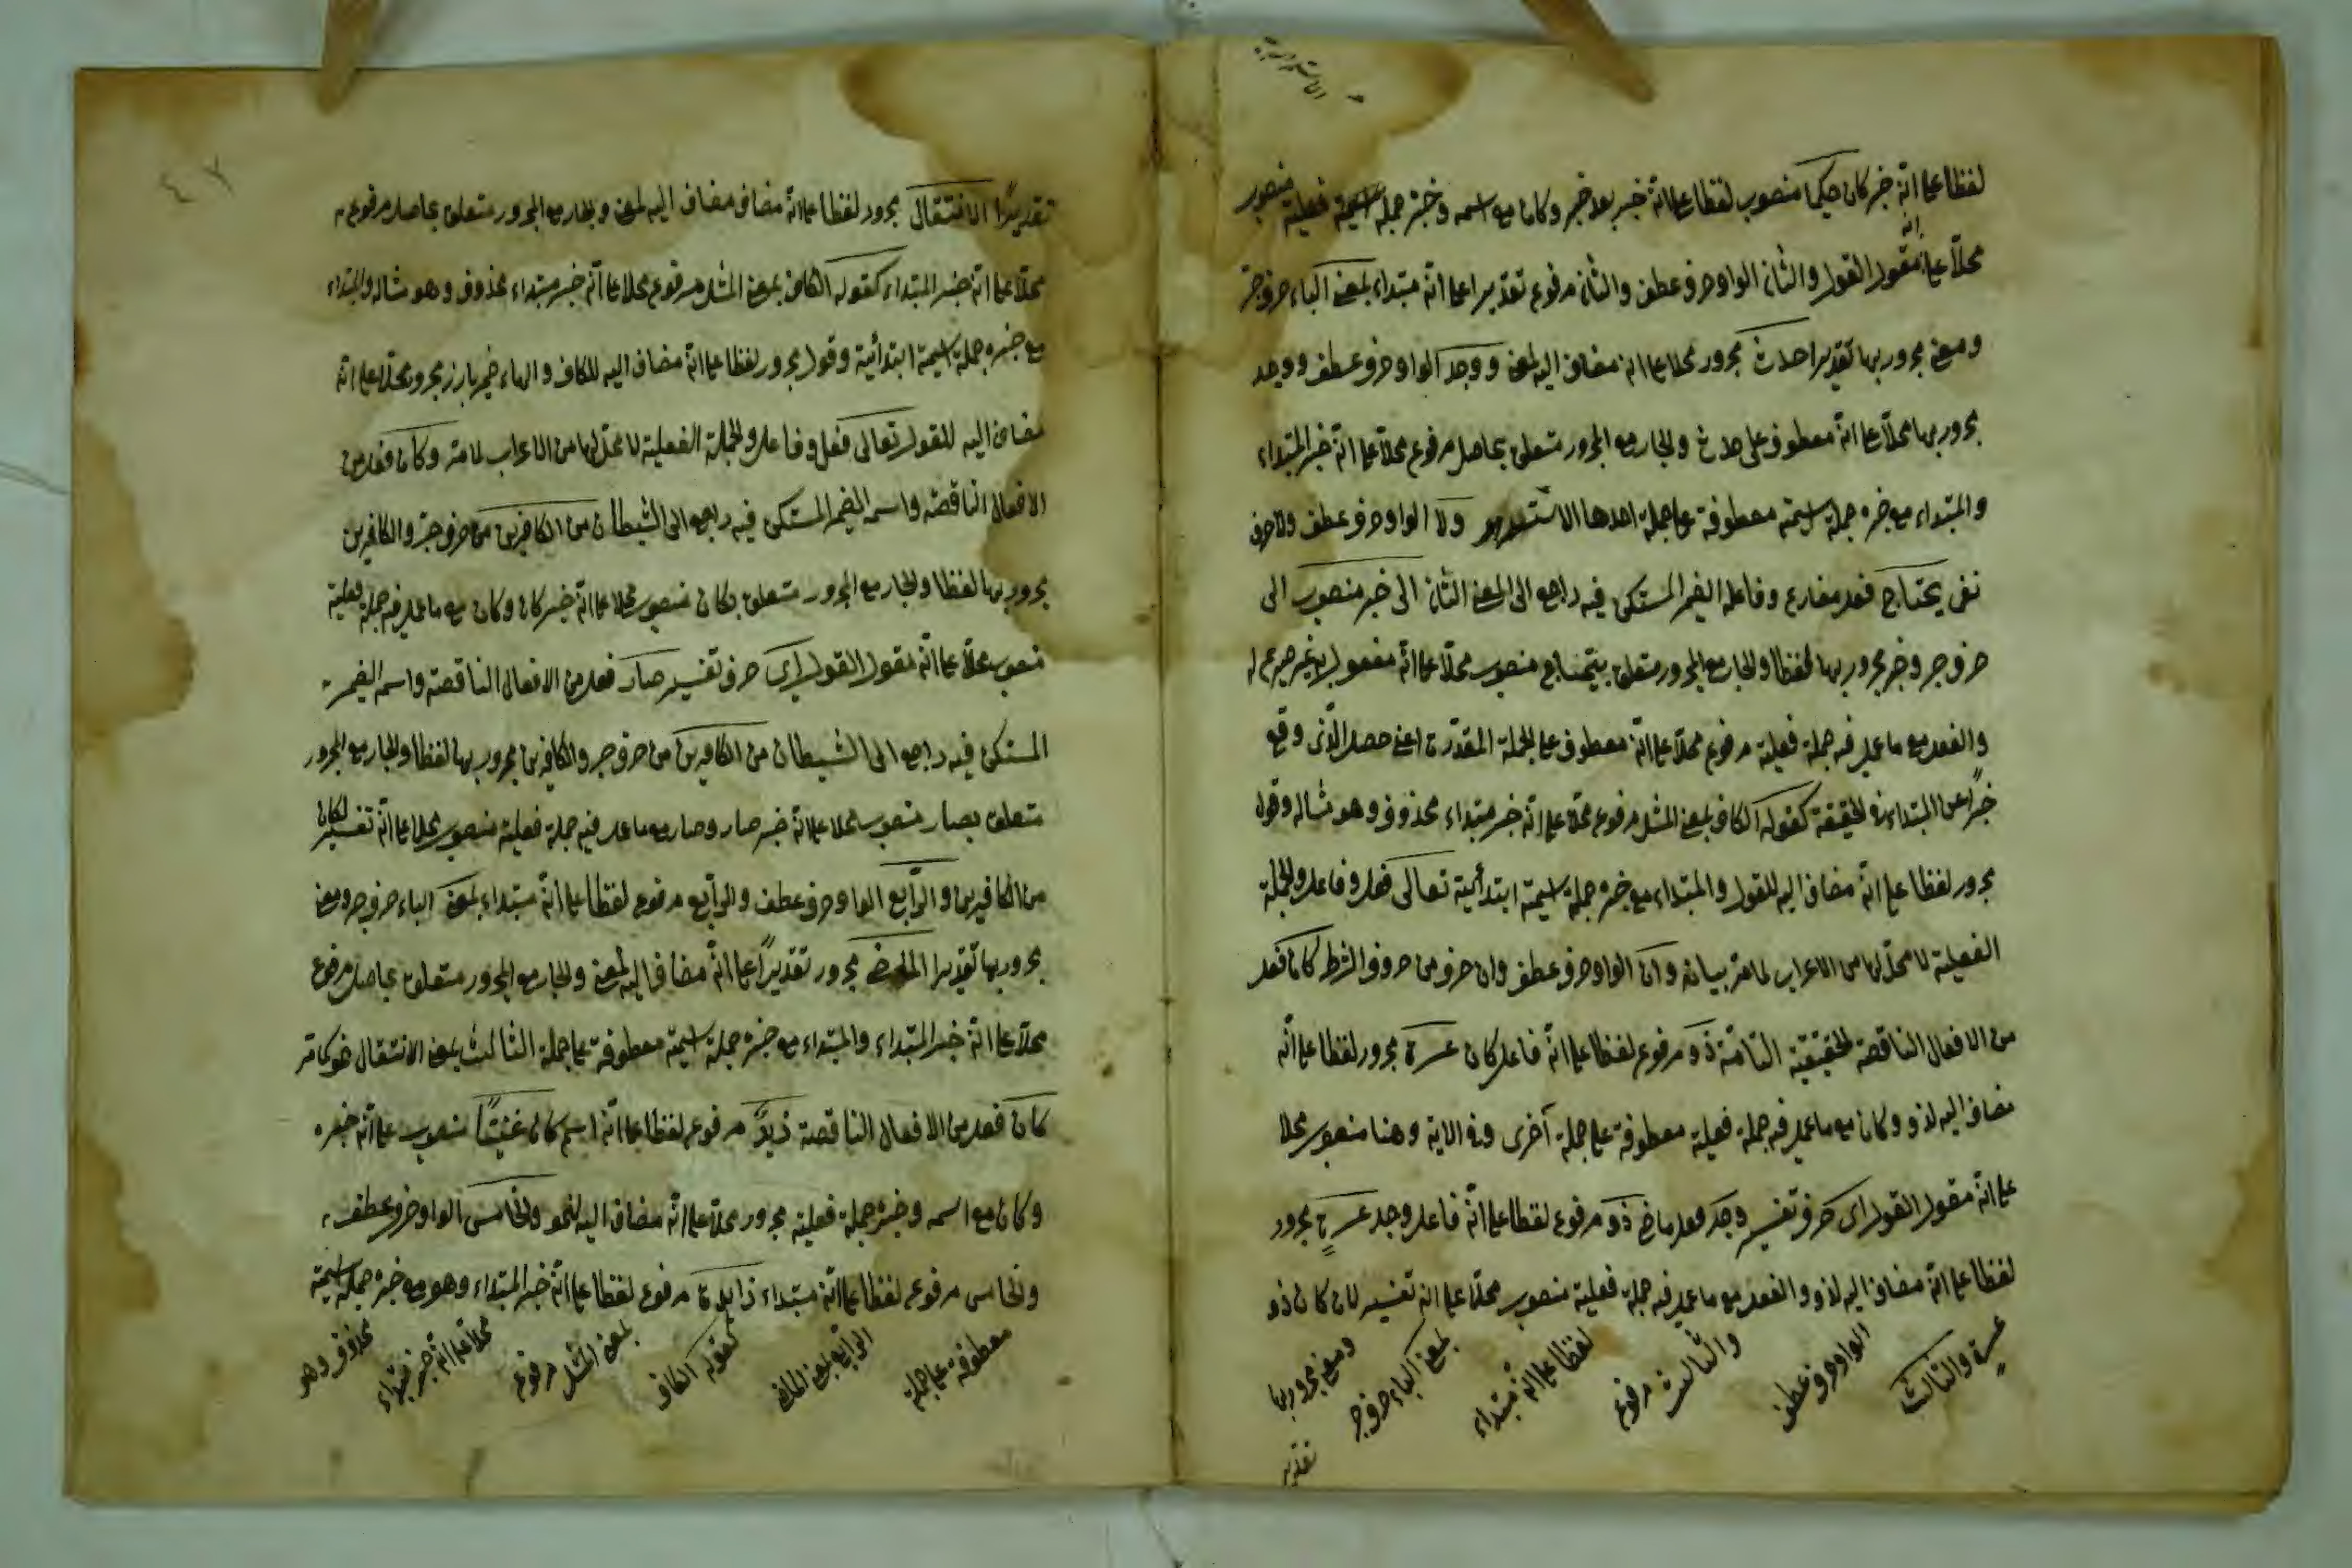 لفظا على انّه خبر كان حكيما منصوب لفظا على انّه خبر بعد خبر وكان مع اسمه وخبره جملة اسمية فعلية منصوب
محلّا على انّه مقول القول والثانى الواو حرف عطف والثانى مرفوع تقديرا على انّه مبتداء بمعنى الباء حرف جرّ
ومعنى مجرور بها تقديرا حدث مجرور محلا على انه مضاف اليه لمعنى ووجد الواو حرف عطف ووجد
مجرور بها محلّا على انّه معطوف على حدث والجار مع المجرور متعلق بحاصل مرفوع محلّا على انّه خبر المبتداء
والمبتداء مع خبره جملة اسمية معطوفة على جملة احدها ولا الواو حرف عطف ولا حرف
نفى يحتاج فعل مضارع وفاعله الضمير المستكن فيه راجع الى المعنى الثانى الى خبر منصوب الى
حرف جر وخبر مجرور بها لفظا والجار مع المجرور متعلق بيحتاج منصوب محلّا على انّه مفعول به غير صريح له
والفعل مع ما عمل فيه جملة فعلية مرفوع محلّا على انّه معطوف على الجملة المقدرة اعنى حصل الّذى وقع
خبرًا عن المبتداء فى الحقيقة كقوله الكاف بمعنى المثل مرفوع محلّا على انّه خبر مبتداء محذوف وهو مثاله وقول
مجرور لفظا على انّه مضاف اليه للقول والمبتداء مع خبره جملة اسمية ابتدائية تعالى فعل وفاعل والجملة
الفعلية لا محلّ لها من الاعراب لما مرّ بيانه وان الواو حرف عطف وان حرف من حروف الشرط كان فعل
من الافعال الناقصة الحقيقية التامّة ذو مرفوع لفظا على انّه فاعل كان عسرة مجرور لفظا على انّه
مضاف اليه لذو وكان مع ما عمل فيه جملة فعلية معطوفة على جملة آخرى وفى الاية وهنا منصوب محلا
على انّه مقول القول اى حرف تفسير وجد فعل ماض ذو مرفوع لفظا على انّه فاعل وجد عسرةٍ مجرور
لفظا على انّه مضاف اليه لذو والفعل مع ما عمل فيه جملة فعلية منصوب محلّا على انه تفسير لان كان ذو
عسرة والثالث
الواو حرف عطف
والثالث مرفوع
لفظا على انّه مبتداء
بمعنى الباء حرف جر
ومعنى مجرور بها
تقدير
٤٧
تقديرًا الانتقال مجرور لفظا على انّه مضاف مضاف اليه لمعنى والجار مع المجرور متعلق بحاصل مرفوع
محلّا على انّه خبر المبتداء كقوله الكاف بمعنى المثل مرفوع محلا على انّه خبر مبتداء محذوف وهو مثاله والمبتداء
مع خبره جملة اسمية ابتدائية وقول مجرور لفظا على انّه مضاف اليه للكاف والهاء ضمير بارز مجرور محلّا على انّه
مضاف اليه للقول تعالى فعل وفاعل والجملة الفعلية لا محلّ لها من الاعراب لما مرّ وكان فعل من
الافعال الناقصة واسمه الضمير المستكن فيه راجع الى الشيطان من الكافرين من حرف جرّ والكافرين
مجرور بها لفظا والجار مع المجرور متعلق بكان منصوب محلا على انّه خبر كان وكان مع ما عمل فيه جملة فعلية
منصوب محلّا على انّه مقول القول اى حرف تفسير صار فعل من الافعال الناقصة واسمه الضمير
المستكن فيه راجع الى الشيطان من الكافرين من حرف جر والكافرين مجرور بها لفظا والجار مع المجرور
متعلق بصار منصوب محلا على انّه خبر صار وصار مع ما عمل فيه جملة فعلية منصوب محلا على انّه تفسير لكان
من الكافرين والرّابع الواو حرف عطف والرّابع مرفوع لفظا على انّه مبتداء بمعنى الباء حرف جر ومعنى
مجرور بها تقديرا الماضى مجرور تقديرًا على انّه مضاف اليه لمعنى والجار مع المجرور متعلق بحاصل مرفوع
محلّا على انّه خبر المبتداء والمبتداء مع خبره جملة اسمية معطوفة على جملة الثالث بمعنى الانتقال نحو كما مر
كان فعل من الافعال الناقصة زيدٌ مرفوع لفظا على انّه اسم كان غنيًّا منصوب على انّه خبره
وكان مع اسمه وخبره جملة فعلية مجرور محلّا على انّه مضاف اليه لنحو والخامس الواو حرف عطف
والخامس مرفوع لفظا على انّه مبتداء زايدة مرفوع لفظا على انّه خبر المبتداء وهو مع خبره جملة اسمية
معطوفة على جملة
الرابع بمعنى الماضى
كقوله الكاف
بمعنى المثل مرفوع
محلا على انّه خبر مبتداء
محذوف وهو